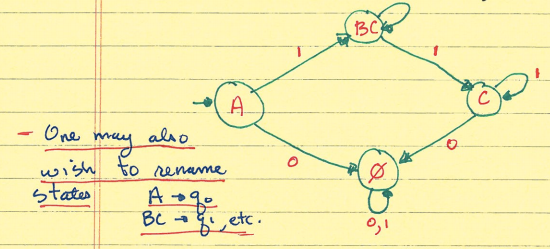 BC
1
1
A
C
1
0
0
Ø
0,1
- One may also
wish to rename
states A → q₀
BC → q₁, etc.